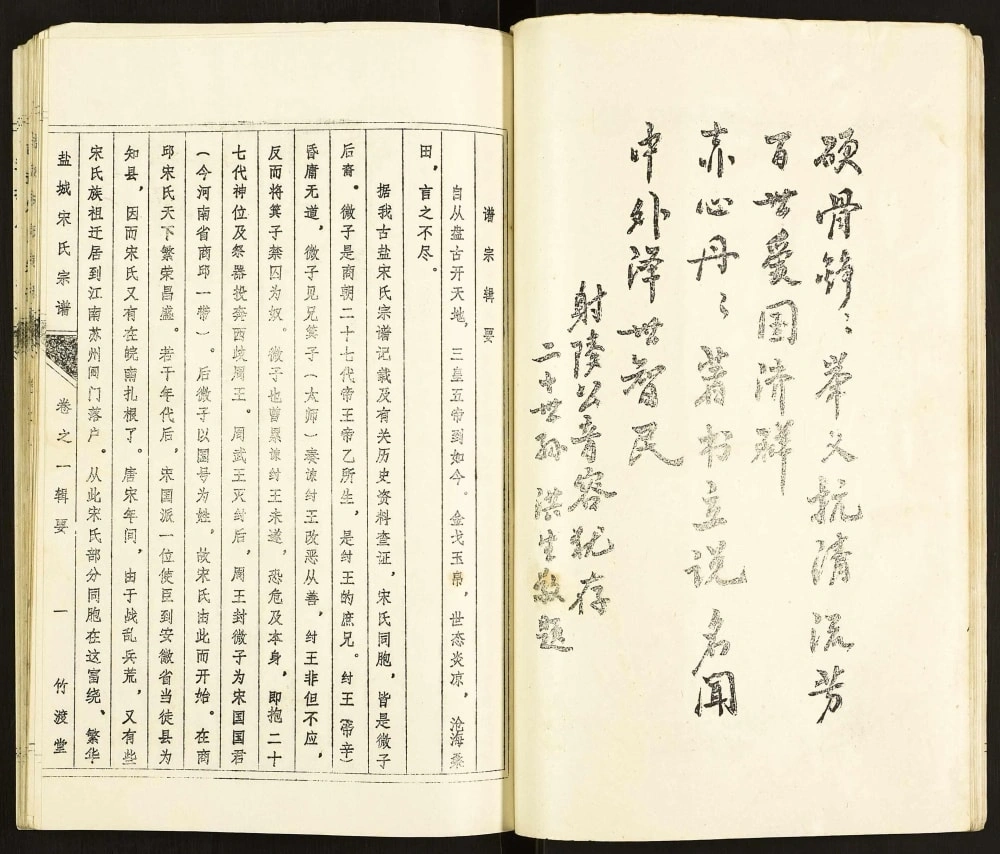 硬骨铮〻举义抗清流芳
百世爱国济群
赤心丹〻著书立说名闻
中外泽世智民
射陵公音容犹存
二十世孙洪生敬题
谱宗辑要
自从盘古开天地，三皇五帝到如今。金戈玉帛，世态炎凉，沧海桑
田，言之不尽。
据我古盐宋氏宗谱记载及有关历史资料查证，宋氏同胞，皆是微子
后裔。微子是商朝二十七代帝王帝乙所生，是纣王的庶兄。纣王（帝辛）
昏庸无道，微子见兄箕子（太师）奏谏纣王改恶从善，纣王非但不应，
反而将箕子禁囚为奴。微子也曾累谏纣王未遂，恐危及本身，即抱二十
七代神位及祭器投奔西岐周王。周武王灭纣后，周王封微子为宋国国君
（今河南省商邱一带）。后微子以国号为姓，故宋氏由此而开始。在商
邱宋氏天下繁荣昌盛。若干年代后，宋国派一位使臣到安徽省当徒县为
知县，因而宋氏又有在皖南扎根了。唐宋年间，由于战乱兵荒，又有些
宋氏族祖迁居到江南苏州阊门落户。从此宋氏部分同胞在这富绕、繁华
盐城宋氏宗谱
卷之一辑要
一
竹渡堂